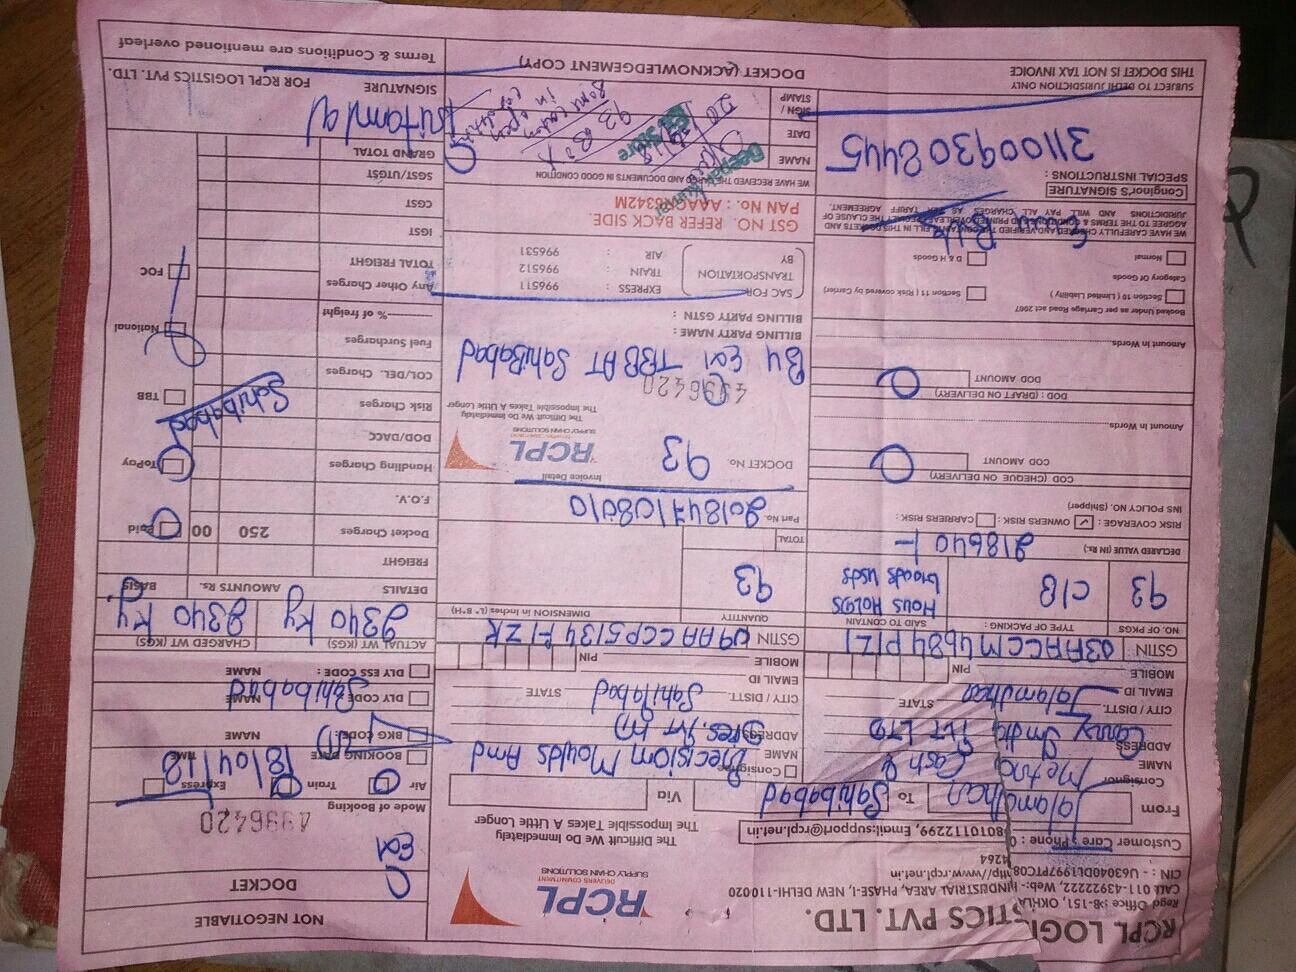 RCPL LOGISTICS PVT. LTD.
Regd Office : B-151, OKHLA INDUSTRIAL AREA, PHASE-I, NEW DELHI-110020
CALL-011-43922222, Web:- http//www.rcpl.net.in
CIN : - U63040DL1997PTC08 4264
Customer Care Phone : 0 8010112299, Email:support@rcpl.net.in
RCPL
SUPPLY CHAIN SOLUTIONS
DELIVERS COMMITMENT
The Difficult We Do Immediately
The Impossible Takes A Little Longer
NOT NEGOTIABLE
DOCKET
Ex1
4996420
Mode of Booking
Air Train Express
BOOKING DATE TIME
18/04/18
BKG CODE : NAME
DLY CODE NAME
Sahibabad
DLY ESS CODE : NAME
From Jalandhar To Sahibabad Via
Consignor
NAME Metro Cash &
ADDRESS Carry India Pvt LTD
CITY / DISTT. Jalandhar STATE
EMAIL ID
MOBILE PIN
GSTIN 03AACCM4684P1Z1
Consignee
NAME Precision Moulds And
ADDRESS Dies. Pvt
CITY / DISTT. Sahibabad STATE
EMAIL ID
MOBILE PIN
GSTIN 09AACCP5134F1ZK
ACTUAL WT (KGS) CHARGED WT (KGS)
2340 Kg 2340 Kg
NO. OF PKGS TYPE OF PACKING : SAID TO CONTAIN QUANTITY DIMENSION in Inches (L* B*H)
93 C/B Hous Holds Goods usds 93
DECLARED VALUE (IN) (Rs.) 218640/-
TOTAL
RISK COVERAGE : OWNERS RISK : CARRIERS RISK :
INS POLICY NO. (Shipper)
Part No. 201847108010
Invoice Detail
DOCKET No. 93
RCPL
SUPPLY CHAIN SOLUTIONS
The Difficult We Do Immediately
The Impossible Takes A Little Longer
4996420
COD (CHEQUE ON DELIVERY)
COD AMOUNT
Amount in Words
DOD : (DRAFT ON DELIVERY)
DOD AMOUNT
Amount in Words
By Ex1 TBB AT Sahibabad
BILLING PARTY NAME :
BILLING PARTY GSTN :
Booked Under as per Carriage Road act 2007
Section 10 ( Limited Liability ) Section 11 ( Risk covered by Carrier)
Category Of Goods
Normal D & H Goods
SAC FOR TRANSPORTATION BY
EXPRESS : 996511
TRAIN : 996512
AIR : 996531
GST NO. REFER BACK SIDE.
WE HAVE CAREFULLY CHECKED AND VERIFIED THE CONTAINS, FILL IN THIS DOCKETS AND
AGREE TO THE TERMS & CONDITIONS PRINTED OVERLEAF. THE CLAUSE OF
JURISDICTIONS AND WILL PAY ALL CHARGES AS PER TARIFF AGREEMENT.
Conginor's SIGNATURE
SPECIAL INSTRUCTIONS :
311009308445
WE HAVE RECEIVED THE GOODS AND DOCUMENTS IN GOOD CONDITION
NAME
DATE
SIGN / STAMP
Deepak Kumar
Store
DETAILS AMOUNTS Rs. BASIS
FREIGHT
Docket Charges 250 00 Paid
F.O.V.
Handling Charges ToPay
DOD/DACC
Risk Charges TBB
Sahibabad
COL/DEL. Charges
Fuel Surcharges National
% of freight
Any Other Charges FOC
TOTAL FREIGHT
IGST
CGST
SGST/UTGST
GRAND TOTAL
SIGNATURE FOR RCPL LOGISTICS PVT. LTD.
SUBJECT TO DELHI JURISDICTION ONLY
THIS DOCKET IS NOT TAX INVOICE
DOCKET (ACKNOWLEDGEMENT COPY)
Terms & Conditions are mentioned overleaf